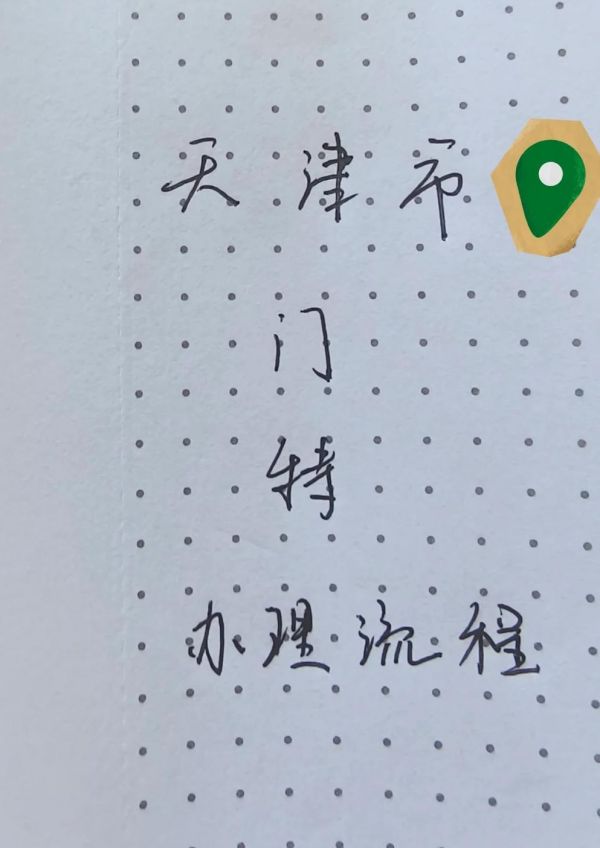 天津市
门
特
办理流程